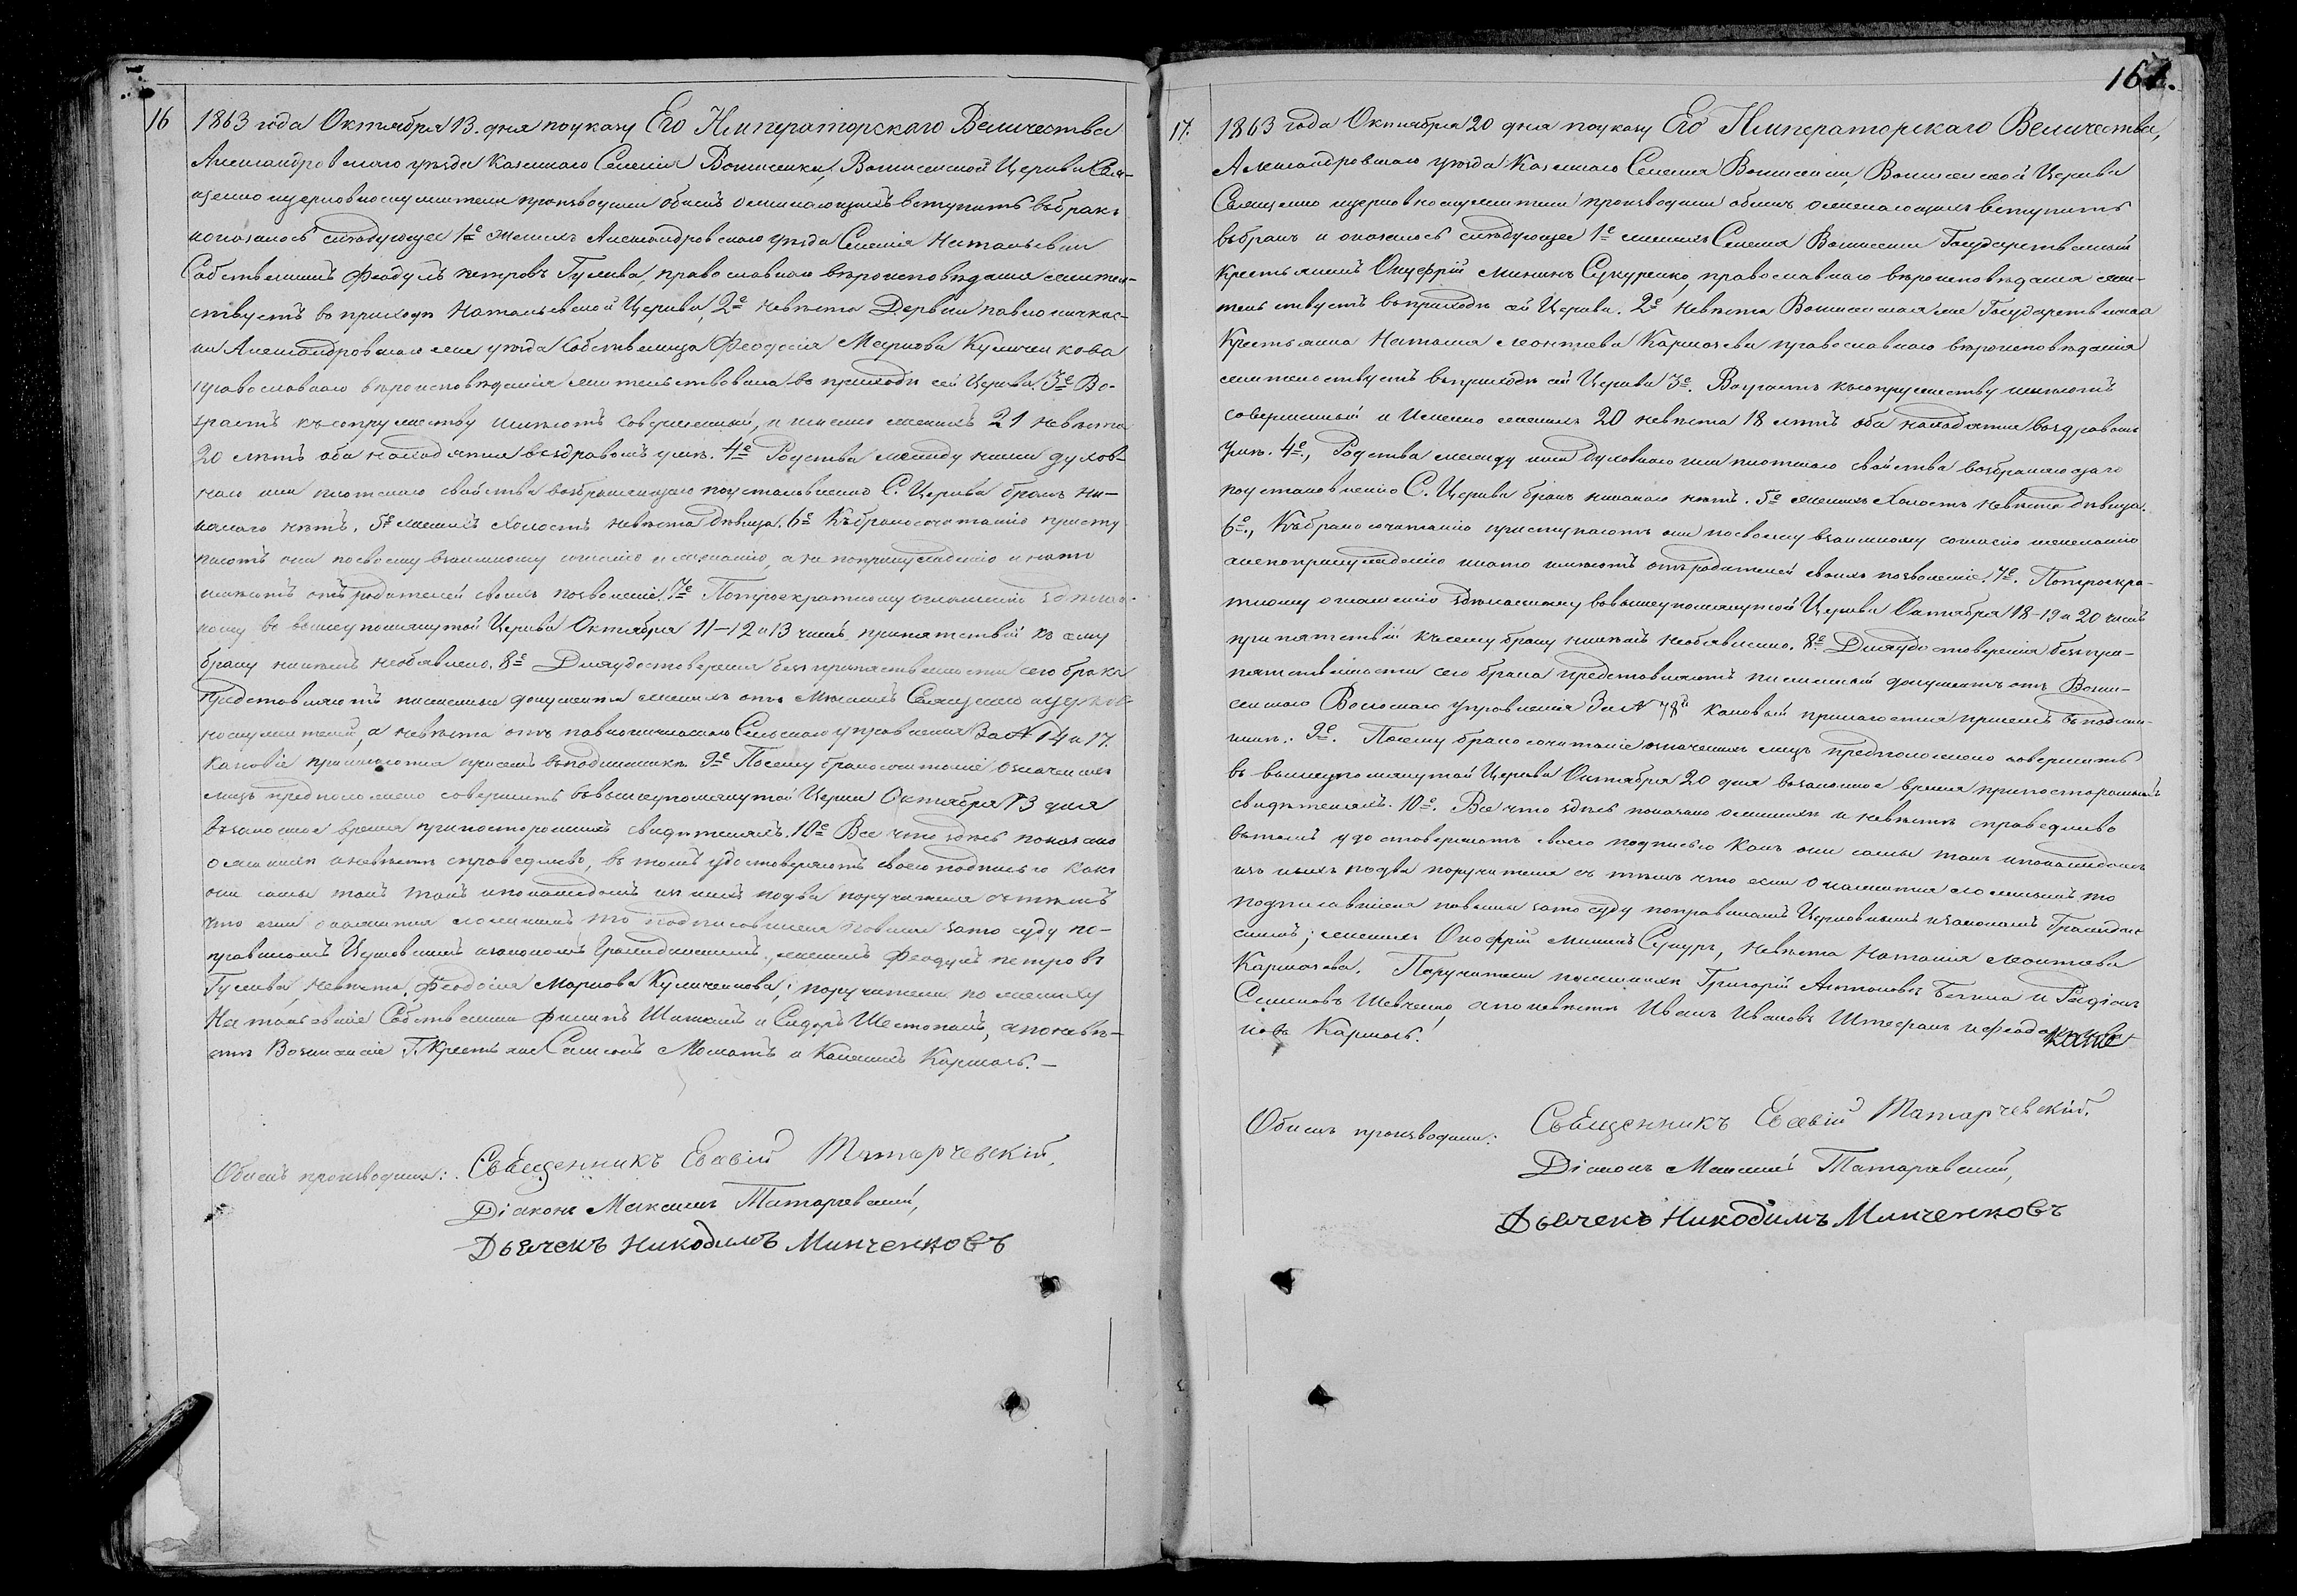 16
1863 года Октября 13. дня по указу Его Императорскаго Величества
Александровскаго уѣзда Казеннаго Селенія Вознесенки, Вознесенской Церкви Свя-
щенно церковнослужители производили обыскъ о желающихъ вступить въ бракъ
и оказалось слѣдующее 1е женихъ Александровскаго уѣзда Селенія Натальевки
Собственникъ Феодулъ петровъ Гулива, православнаго вѣроисповѣданія житель-
ствуетъ въ приходѣ Натальевской Церкви, 2е Невѣста Деревни павлокичкас-
ки Александровскаго же уѣзда Собственница Феодосія Маркова Куличенкова
православнаго вѣроисповѣданія жительствовала въ приходѣ сей Церкви. 3е Во-
зрастъ къ супружеству имѣютъ совершенный, и именно женихъ 21 невѣста
20 лѣтъ оба находятся въ здравомъ умѣ. 4е Родства между ними духов-
наго или плотскаго свойства возбраняющаго по установленію С. Церкви бракъ ни-
какого нѣтъ. 5е женихъ холостъ невѣста дѣвица. 6е Къ бракосочетанію присту-
паютъ они по своему взаимному согласію и желанію, а не по принужденію и на то
имѣютъ отъ родителей своихъ позволеніе. 7е По троекратному оглашенію здѣлан-
ному въ вышеупомянутой Церкви Октября 11–12 и 13 чиселъ препятствій къ сему
браку никѣмъ необявлено. 8е Для удостоверенія безпрепятственности сего брака
представляютъ писменные документы женихъ отъ мѣстныхъ Священно церков-
нослужителей, а невѣста отъ павлокичкаскаго Сельскаго управленія За № 14 и 17.
каковіе прилагаются при семъ въ подлинникѣ. 9е Посему бракосочетаніе означенныхъ
лицъ предположено совершить въ вышеупомянутой Церкви Октября 13 дня
въ законное время при постороннихъ свидѣтеляхъ. 10е Все что здѣсь показано
о женихѣ и невѣстѣ справедливо, въ томъ удостоверяютъ своею подписью какъ
они сами такъ и по каждомъ изъ нихъ по два поручителя съ тѣмъ
что если окажется что ложнымъ то подписавшіеся повинны за то суду по-
правиламъ Церковнымъ и законамъ Гражданскимъ., женихъ Феодулъ петровъ
Гулива, Невѣста Феодосія Маркова Куличенкова; поручители по женихѣ
Натальевскіе Собственники Филипъ Шишкинъ и Сидоръ Шестопалъ, а по невѣ-
стѣ Вознесенскіе Г. Крестьяне
Обыскъ производили: Священникъ Евсевій Татарчевскій,
Діаконъ Максимъ Татарчевскій,
Дьячекъ Никодимъ Минченковъ
17.
1863 года Октября 20 дня по указу Его Императорскаго Величества,
Александровскаго уѣзда Казеннаго Селенія Вознесенки, Вознесенской Церкви
Священно церковнослужители производили обыскъ о желающихъ вступить
въ бракъ и оказалось слѣдующее 1е женихъ Селенія Вознесенки Государственный
Крестьянинъ Онуфрій мининъ Сукуренко, православнаго вѣроисповѣданія жи-
тельствуетъ въ приходѣ сей Церкви. 2е Невѣста Вознесенская же Государственная
Крестьянка Наталія леонтіева Кармазева православнаго вѣроисповѣданія
жительствуетъ въ приходѣ сей Церкви 3е. Возрастъ къ супружеству имѣютъ
совершенный и Именно женихъ 20 невѣста 18 лѣтъ оба находятся въ здравомъ
умѣ. 4е., Родства между ими духовнаго или плотскаго свойства возбраняющаго
по установленію С. Церкви бракъ никакого нѣтъ. 5е женихъ Холостъ невѣста дѣвица.
6е., Къ бракосочетанію приступаютъ они по своему взаимному согласію и желанію
а не по принужденію и на то имѣютъ отъ родителей своихъ позволеніе. 7е. По троекра-
тному оглашенію здѣланному въ вышеупомянутой Церкви Октября 18–19 и 20 чиселъ
препятствій къ сему браку никѣмъ необявленно. 8е Для удостоверенія безпре-
пятственности сего брака представляютъ писменный документъ отъ Возне-
сенскаго Волосного управленія За № 78й каковый прилагается при семъ въ подлин-
никѣ. 9е. Посему бракосочетаніе означенныхъ лицъ предположено совершить
въ вышеупомянутой Церкви Октября 20 дня въ законное время при постороннихъ
свидѣтеляхъ. 10е. Все что здѣсь показано о женихѣ и невѣстѣ справедливо
въ томъ удостоверяютъ своею подписью какъ они сами такъ и по каждомъ
изъ нихъ по два поручителя съ тѣмъ что если окажется что ложнымъ то
подписавшіеся повинны за то суду по правиламъ Церковнымъ и законамъ Граждан-
скимъ; женихъ Онофрій мининъ Сукуръ, Невѣста Наталія леонтіева
Кармазева. Поручители по женихѣ Григорій Антоновъ и Родіонъ
Семеновъ Шевченко, а по невѣстѣ Иванъ Ивановъ Штефанъ и
Обыскъ производили: Священникъ Евсевій Татарчевскій.
Діаконъ Максимъ Татарчевскій,
Дьячекъ Никодимъ Минченковъ